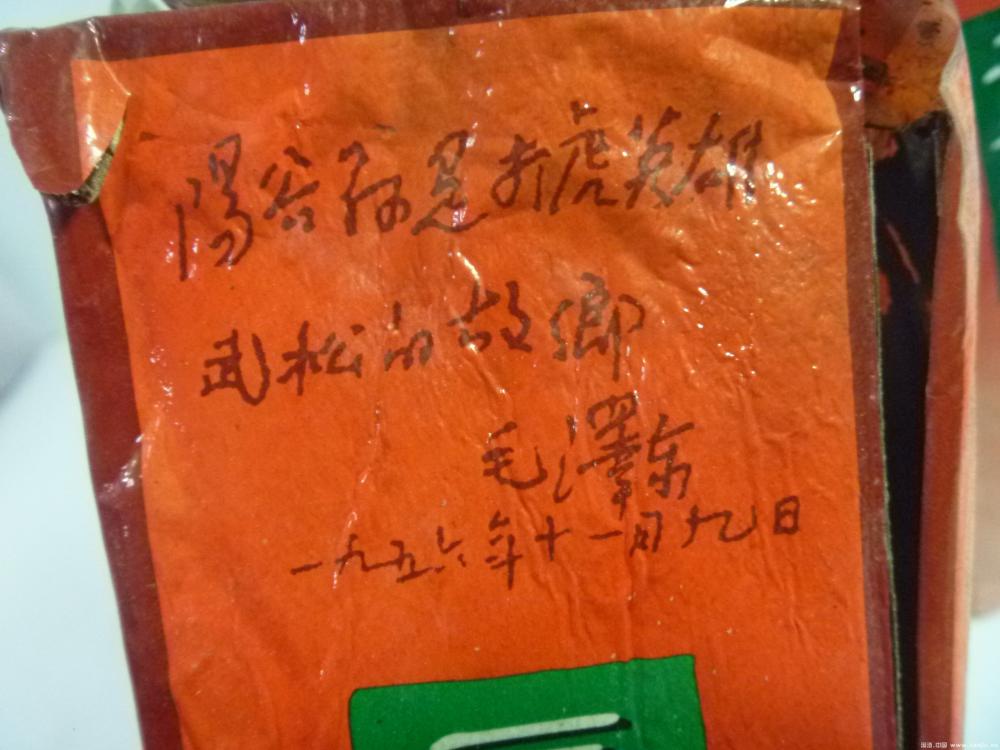 陽谷縣是打虎英雄
武松的故鄉
毛澤东
一九五六年十一月九日